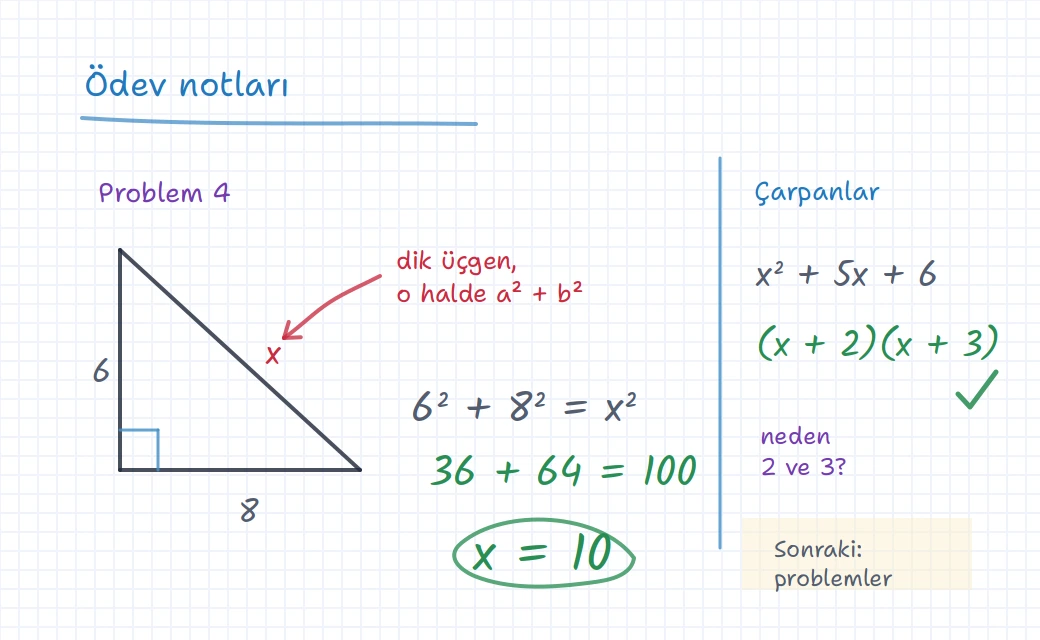 Ödev notları
Problem 4
dik üçgen,
o halde a² + b²
x
6
8
6² + 8² = x²
36 + 64 = 100
x = 10
Çarpanlar
x² + 5x + 6
(x + 2)(x + 3)
neden
2 ve 3?
Sonraki:
problemler